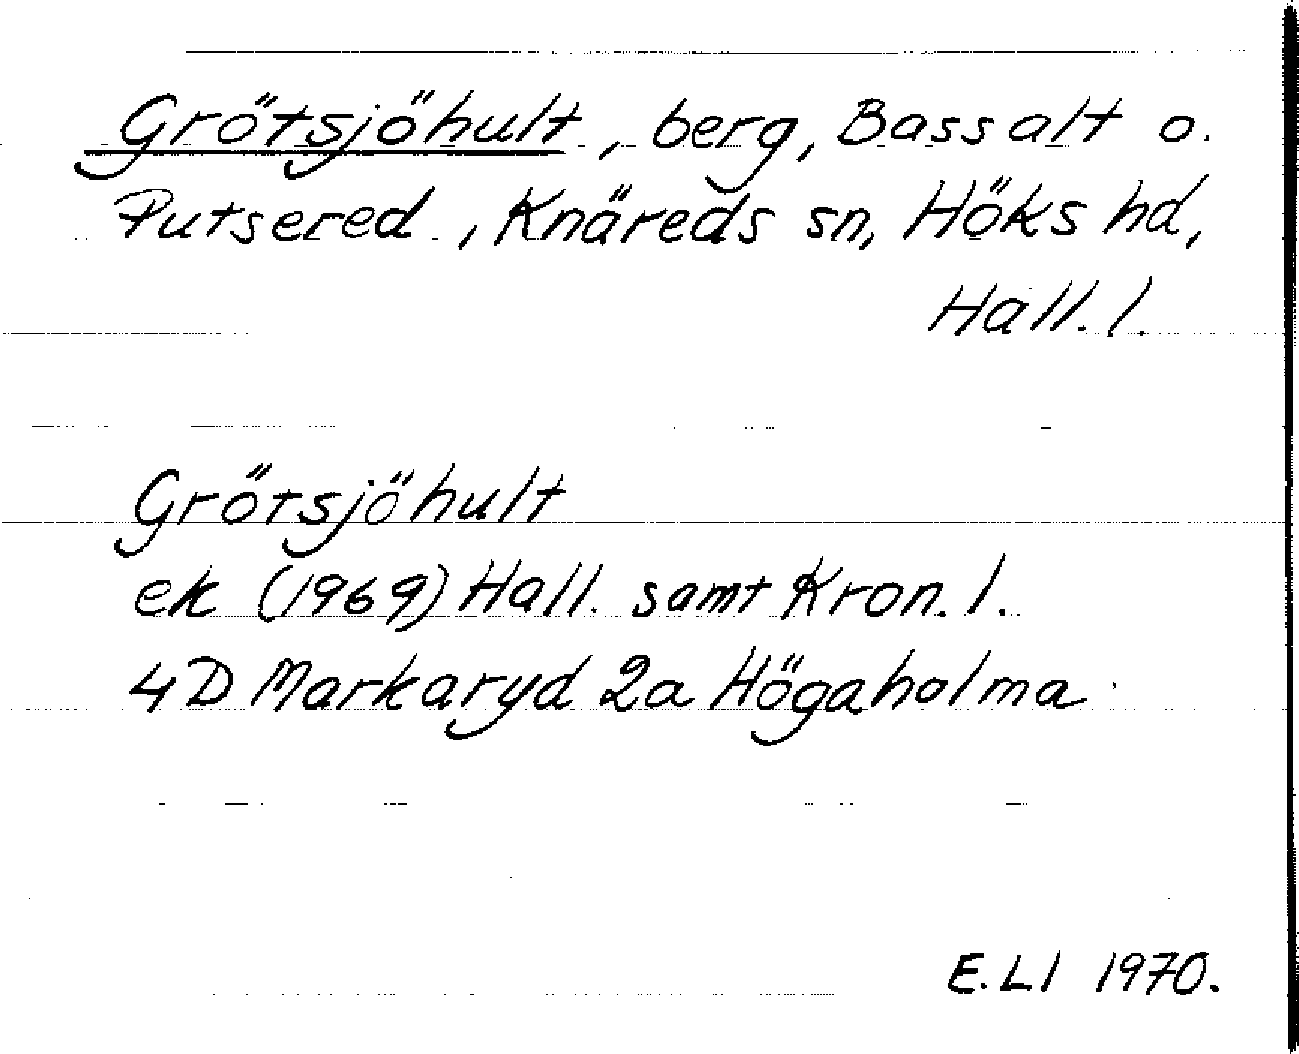 Grötsjöhult, berg, Bassalt o.
Putsered, Knäreds sn, Höks hd,
Hall. l.
Grötsjöhult
ek (1969) Hall. samt Kron. l.
4D Markaryd 2a Högaholma
E. Ll 1970.